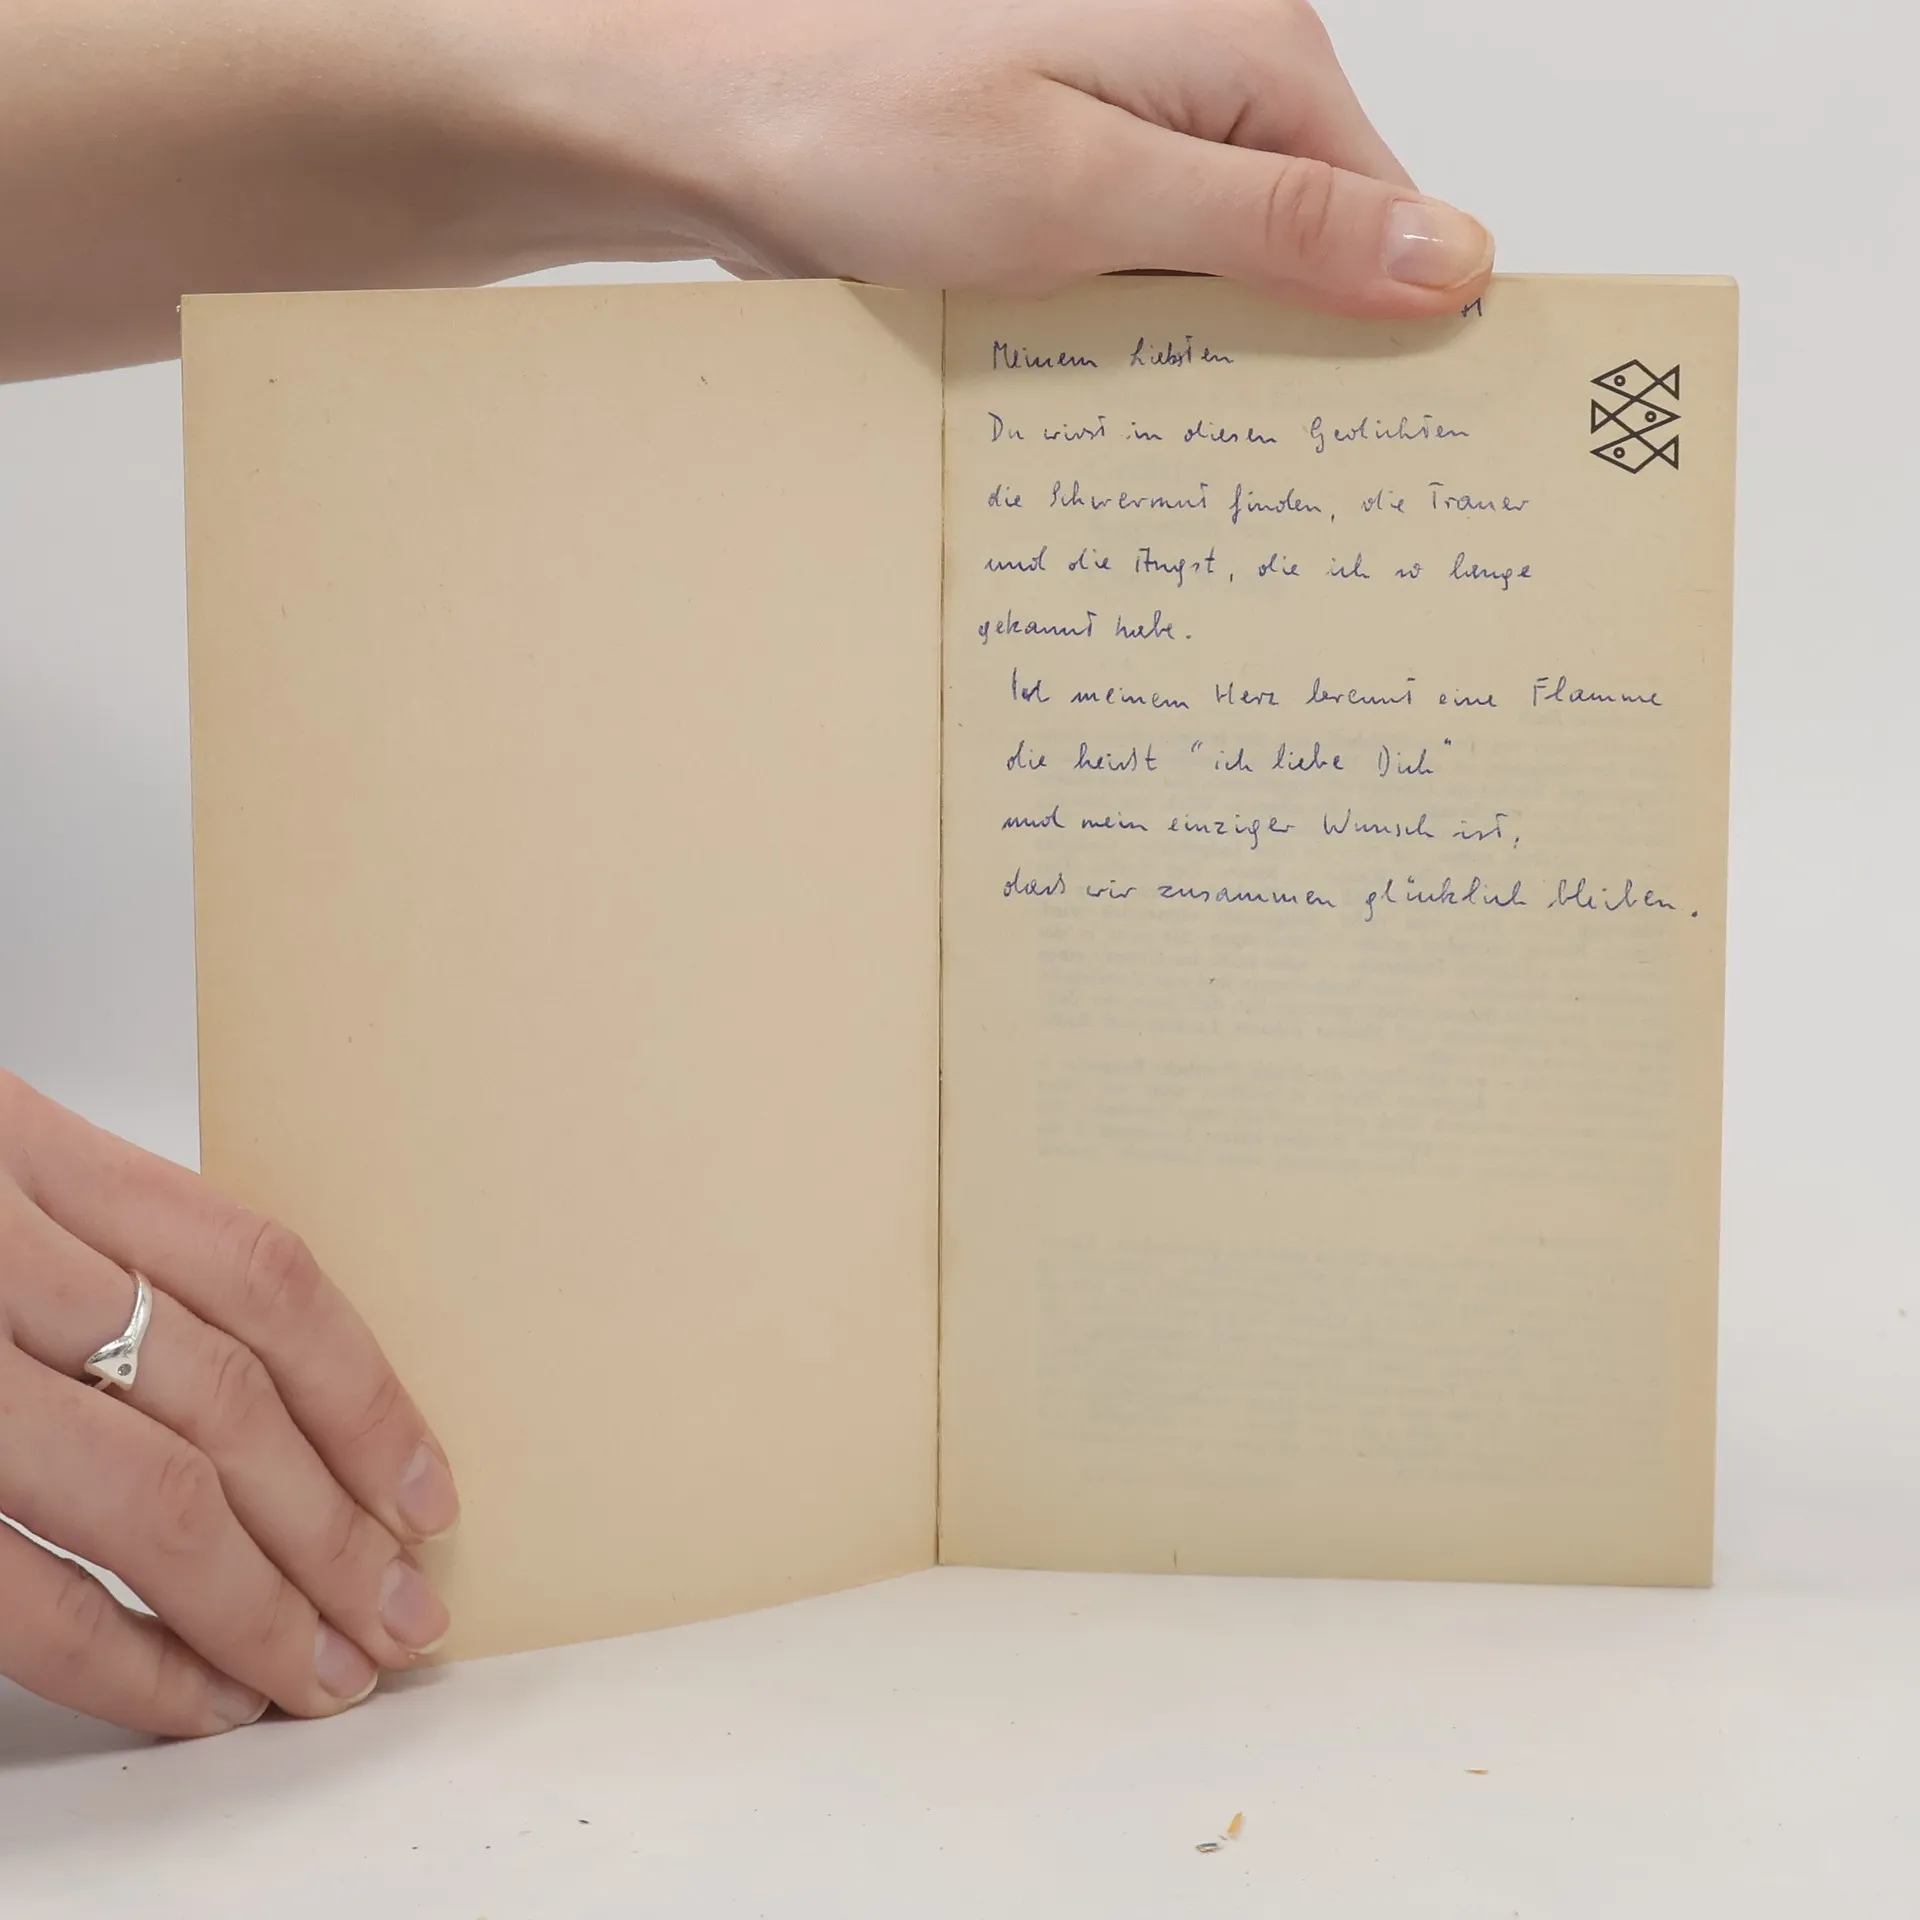 Meinem Liebsten
Du wirst in diesen Gedichten
die Schwermut finden, die Trauer
und die Angst, die ich so lange
gekannt habe.
meinem Herz brennt eine Flamme
die heißt "ich liebe Dich"
und mein einziger Wunsch ist,
daß wir zusammen glücklich bleiben.